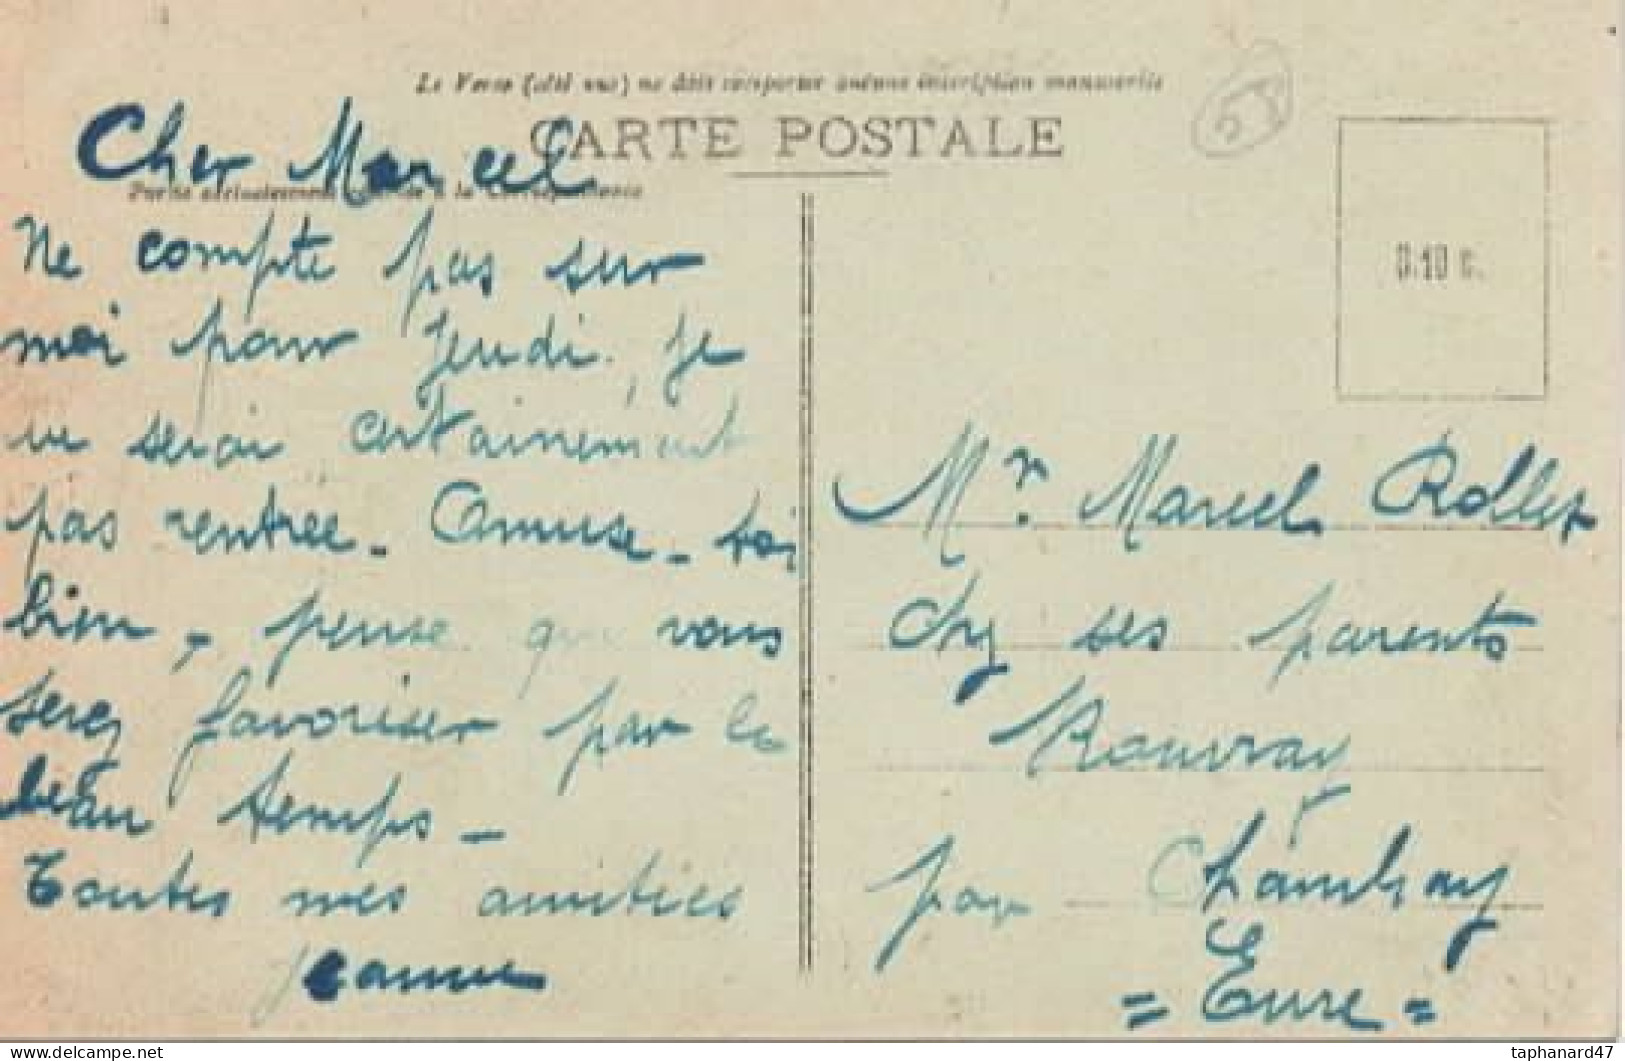 Le Verso (côté vue) ne doit comporter aucune inscription manuscrite
CARTE POSTALE
55
Partie exclusivement à la Correspondance
0.10 c.
Cher Marcel
Ne compte pas sur
moi pour Jeudi, Je
ne serai certainement
pas rentrée - Amuse - toi
bien, pense que vous
serez favoriser par le
beau temps -
Toutes mes amitiés
Jeanne
Mr. Marcel Rollet
chez ses parents
Rouvray
par Chambray
= Eure =
taphanard47